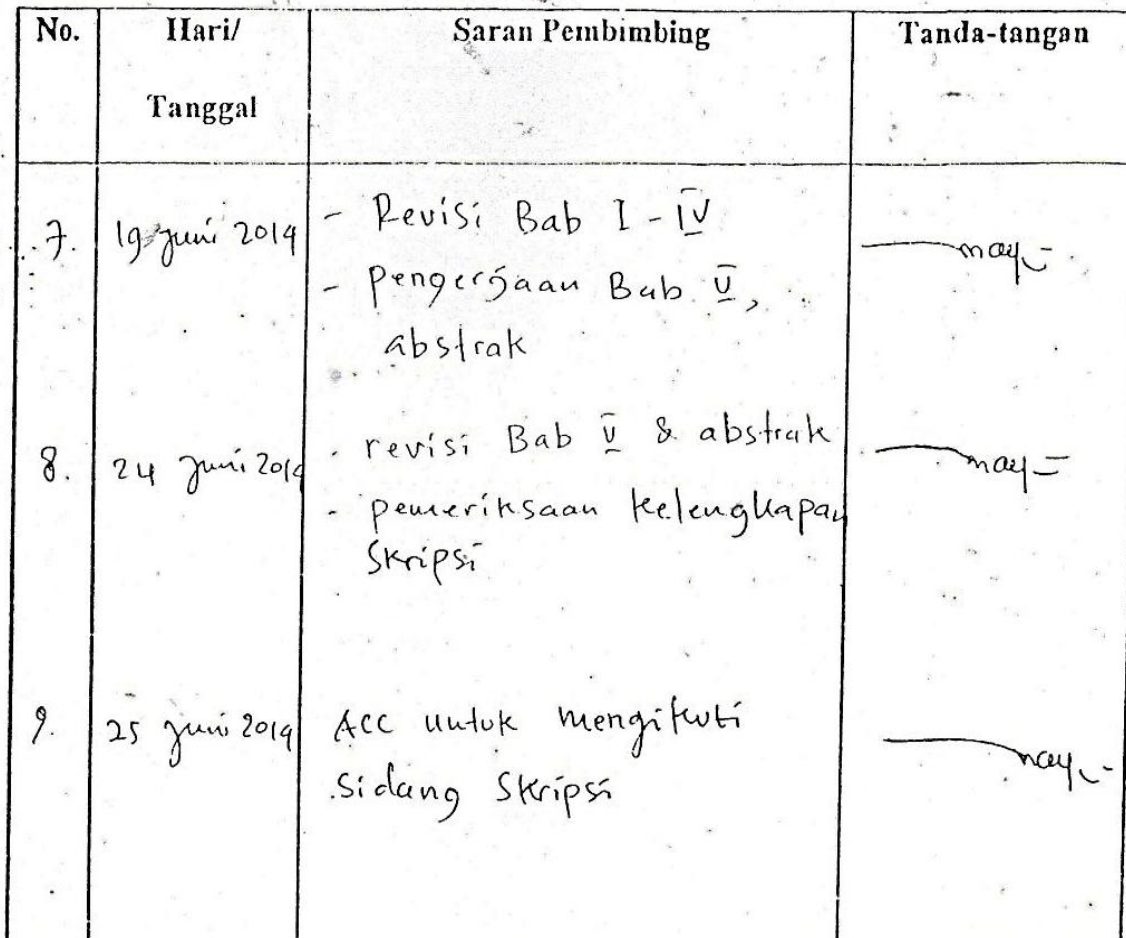 No. Hari/ Saran Pembimbing Tanda-tangan
Tanggal
7. 19 Juni 2014 - Revisi Bab I - IV
- pengerjaan Bab V,
abstrak
8. 24 Juni 2014 - revisi Bab V & abstrak
- pemeriksaan kelengkapan
Skripsi
9. 25 Juni 2014 ACC untuk mengikuti
Sidang Skripsi